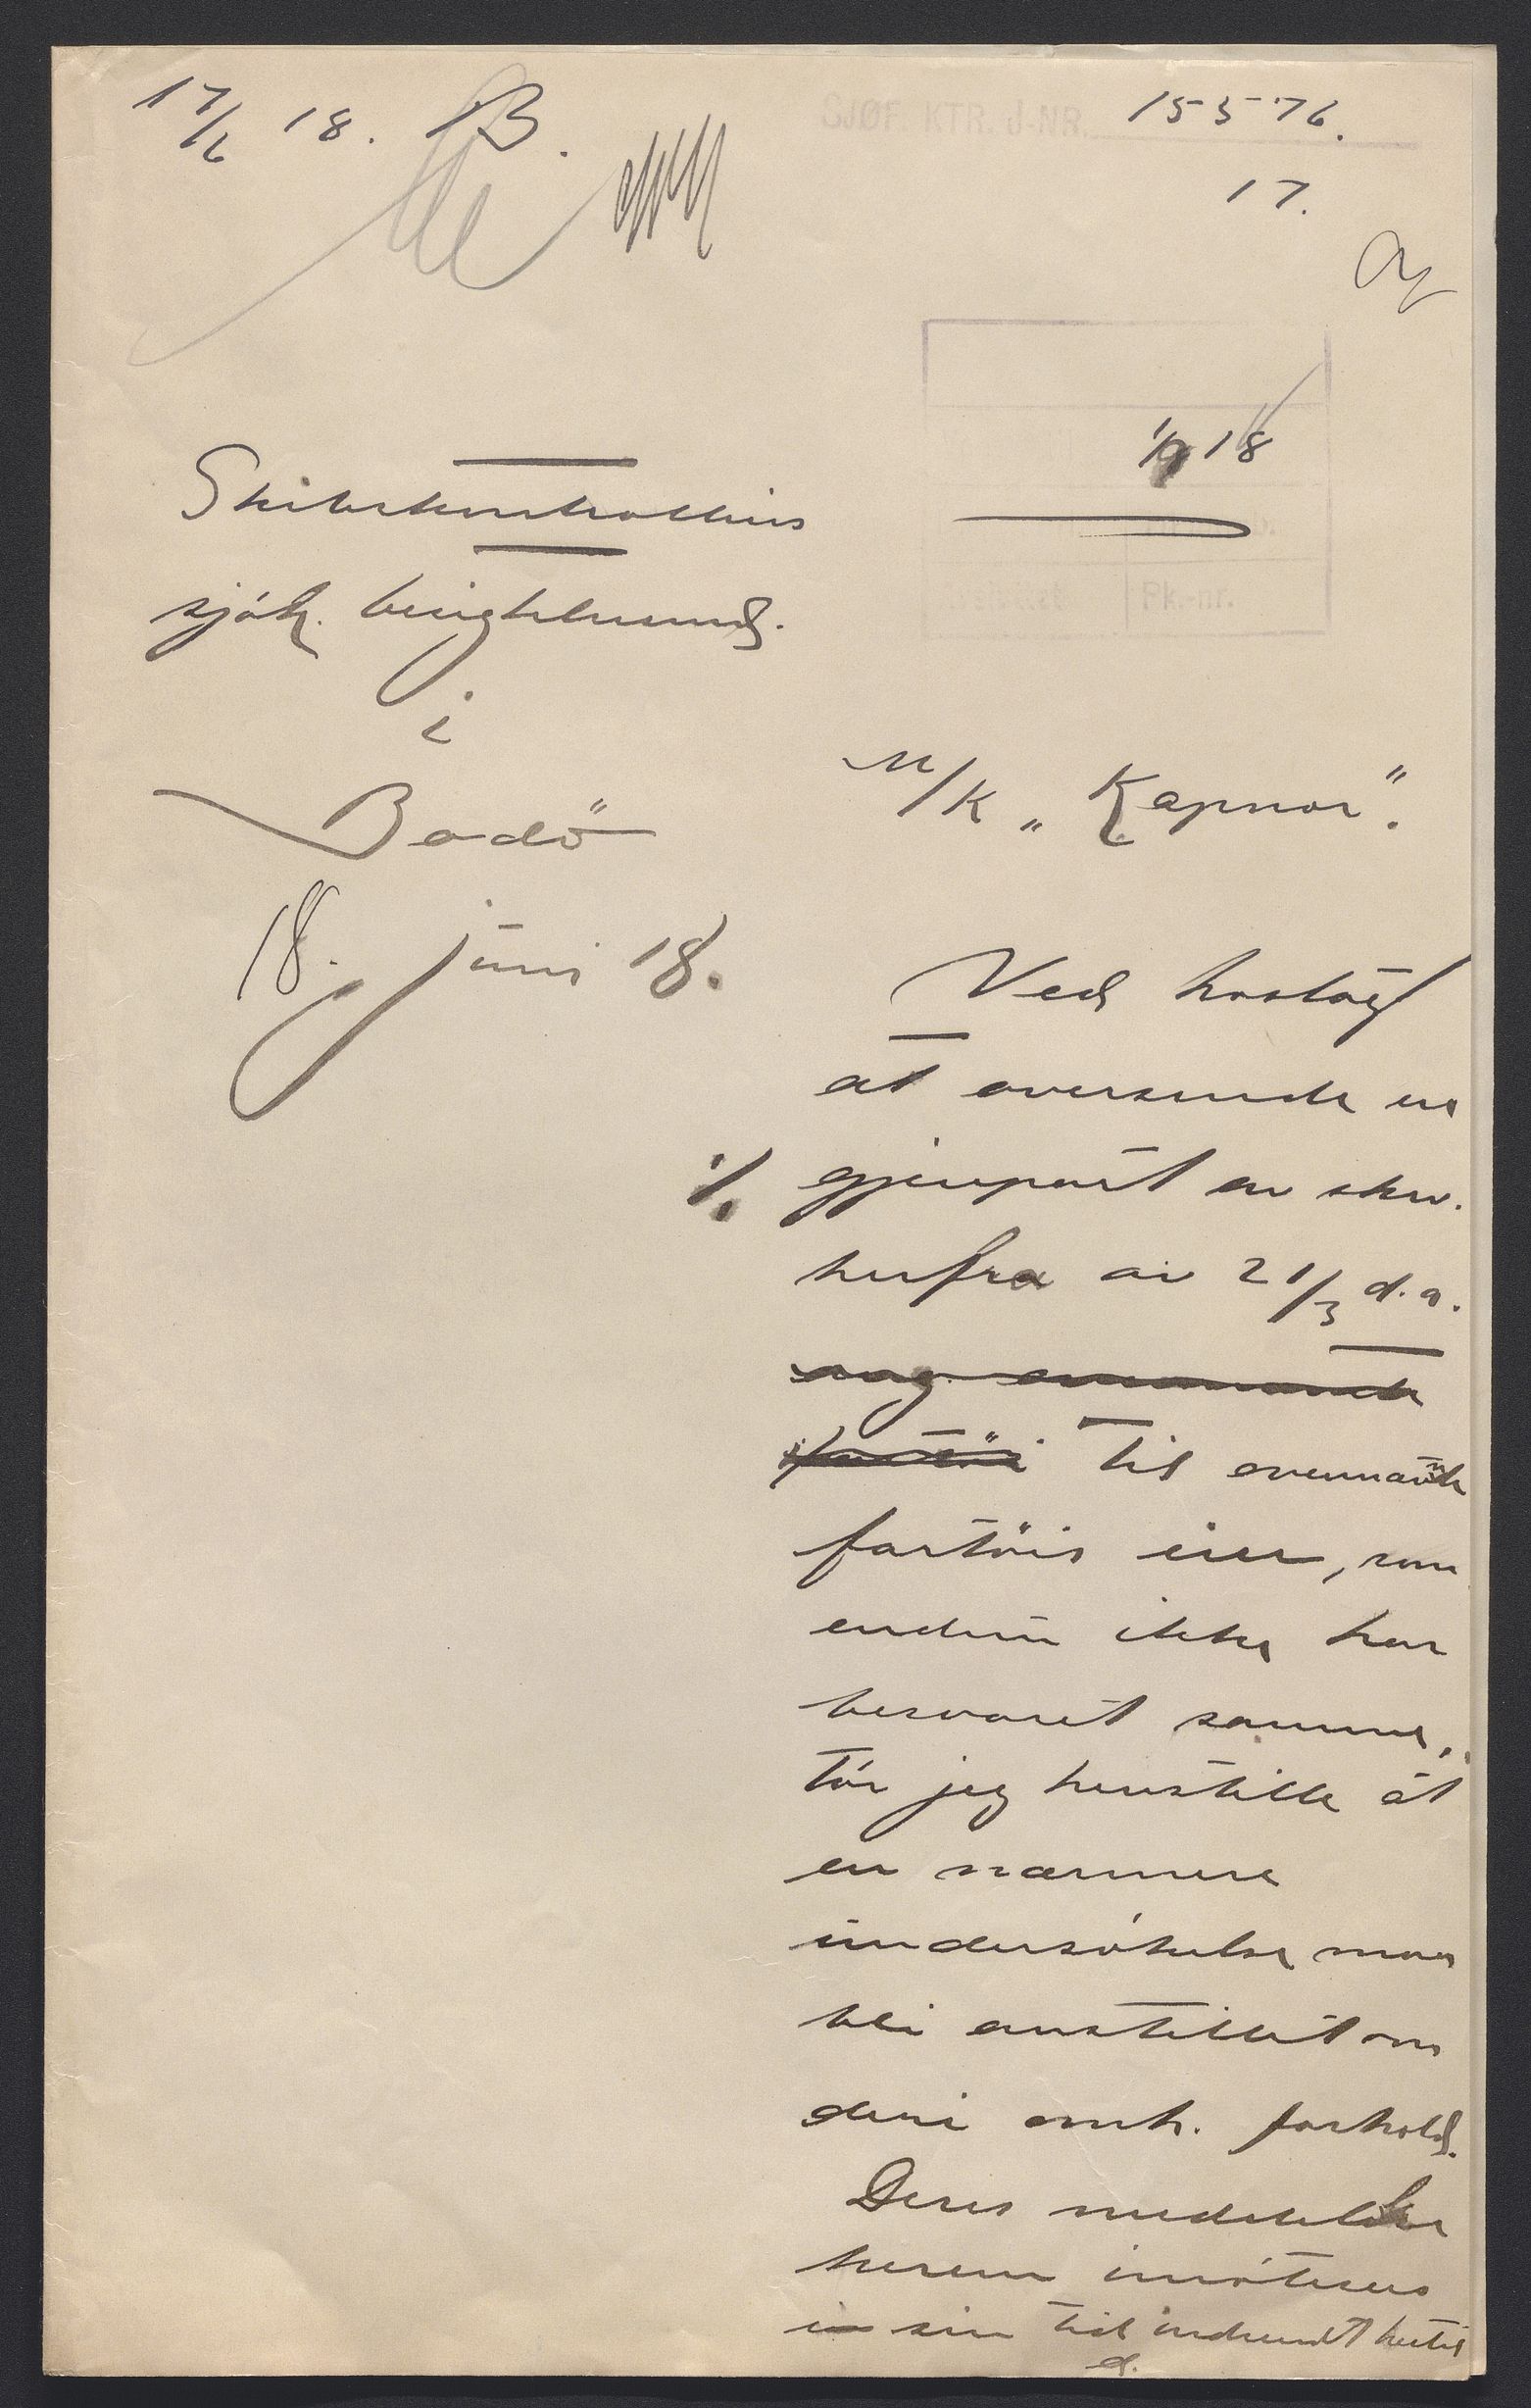 17/6 18. B.
SJØF. KTR. J-NR. 15576.
17.
1/9 18
Pk.-nr.
Skibskontrollens
sjök. besigtelsesmd.
i
Bodö
18. juni 18.
M/K „Kapnor".
Ved hoslagt
at oversende en
./. gjenpart av skr.
herfra av 21/3 d.a.
ang. ovennævnte
fartöi til ovennævnte
fartöis eier, som
endnu ikke har
besvaret samme,
tör jeg henstille at
en nærmere
undersökelse maa
bli anstillet om
deri omh. forhold.
Deres meddelelse
herom imötesees
i sin tid indsendt hertil